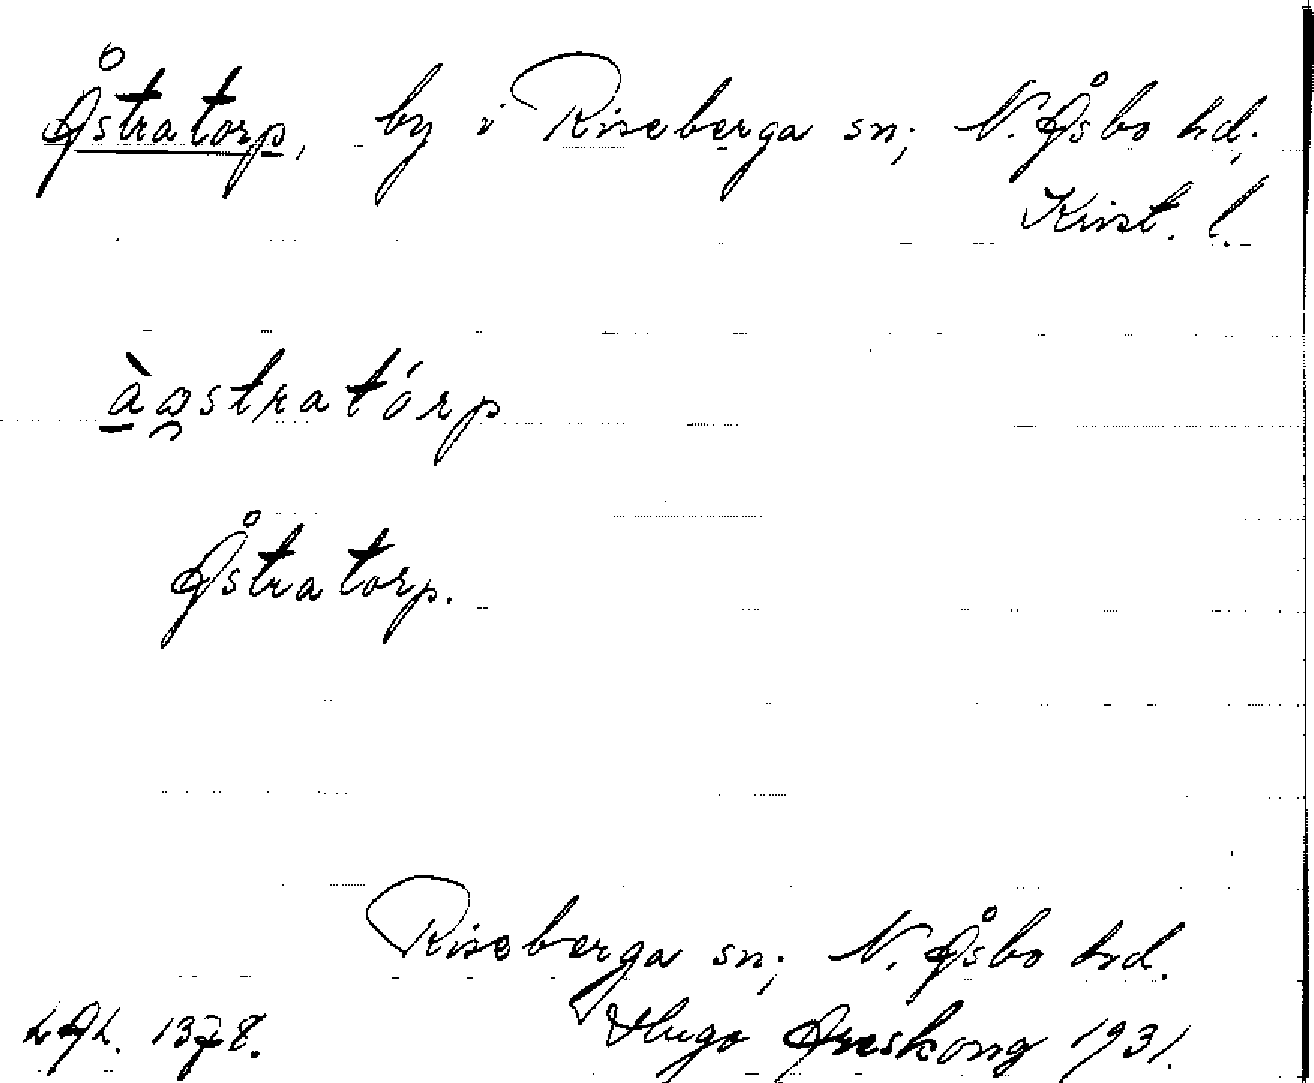 Åstratorp, by i Riseberga sn; N. Åsbo hd;
Krist. l.
àa̯stratórp
Åstratorp.
Riseberga sn; N. Åsbo hd.
LAL. 1378. Hugo Areskoug 1931.